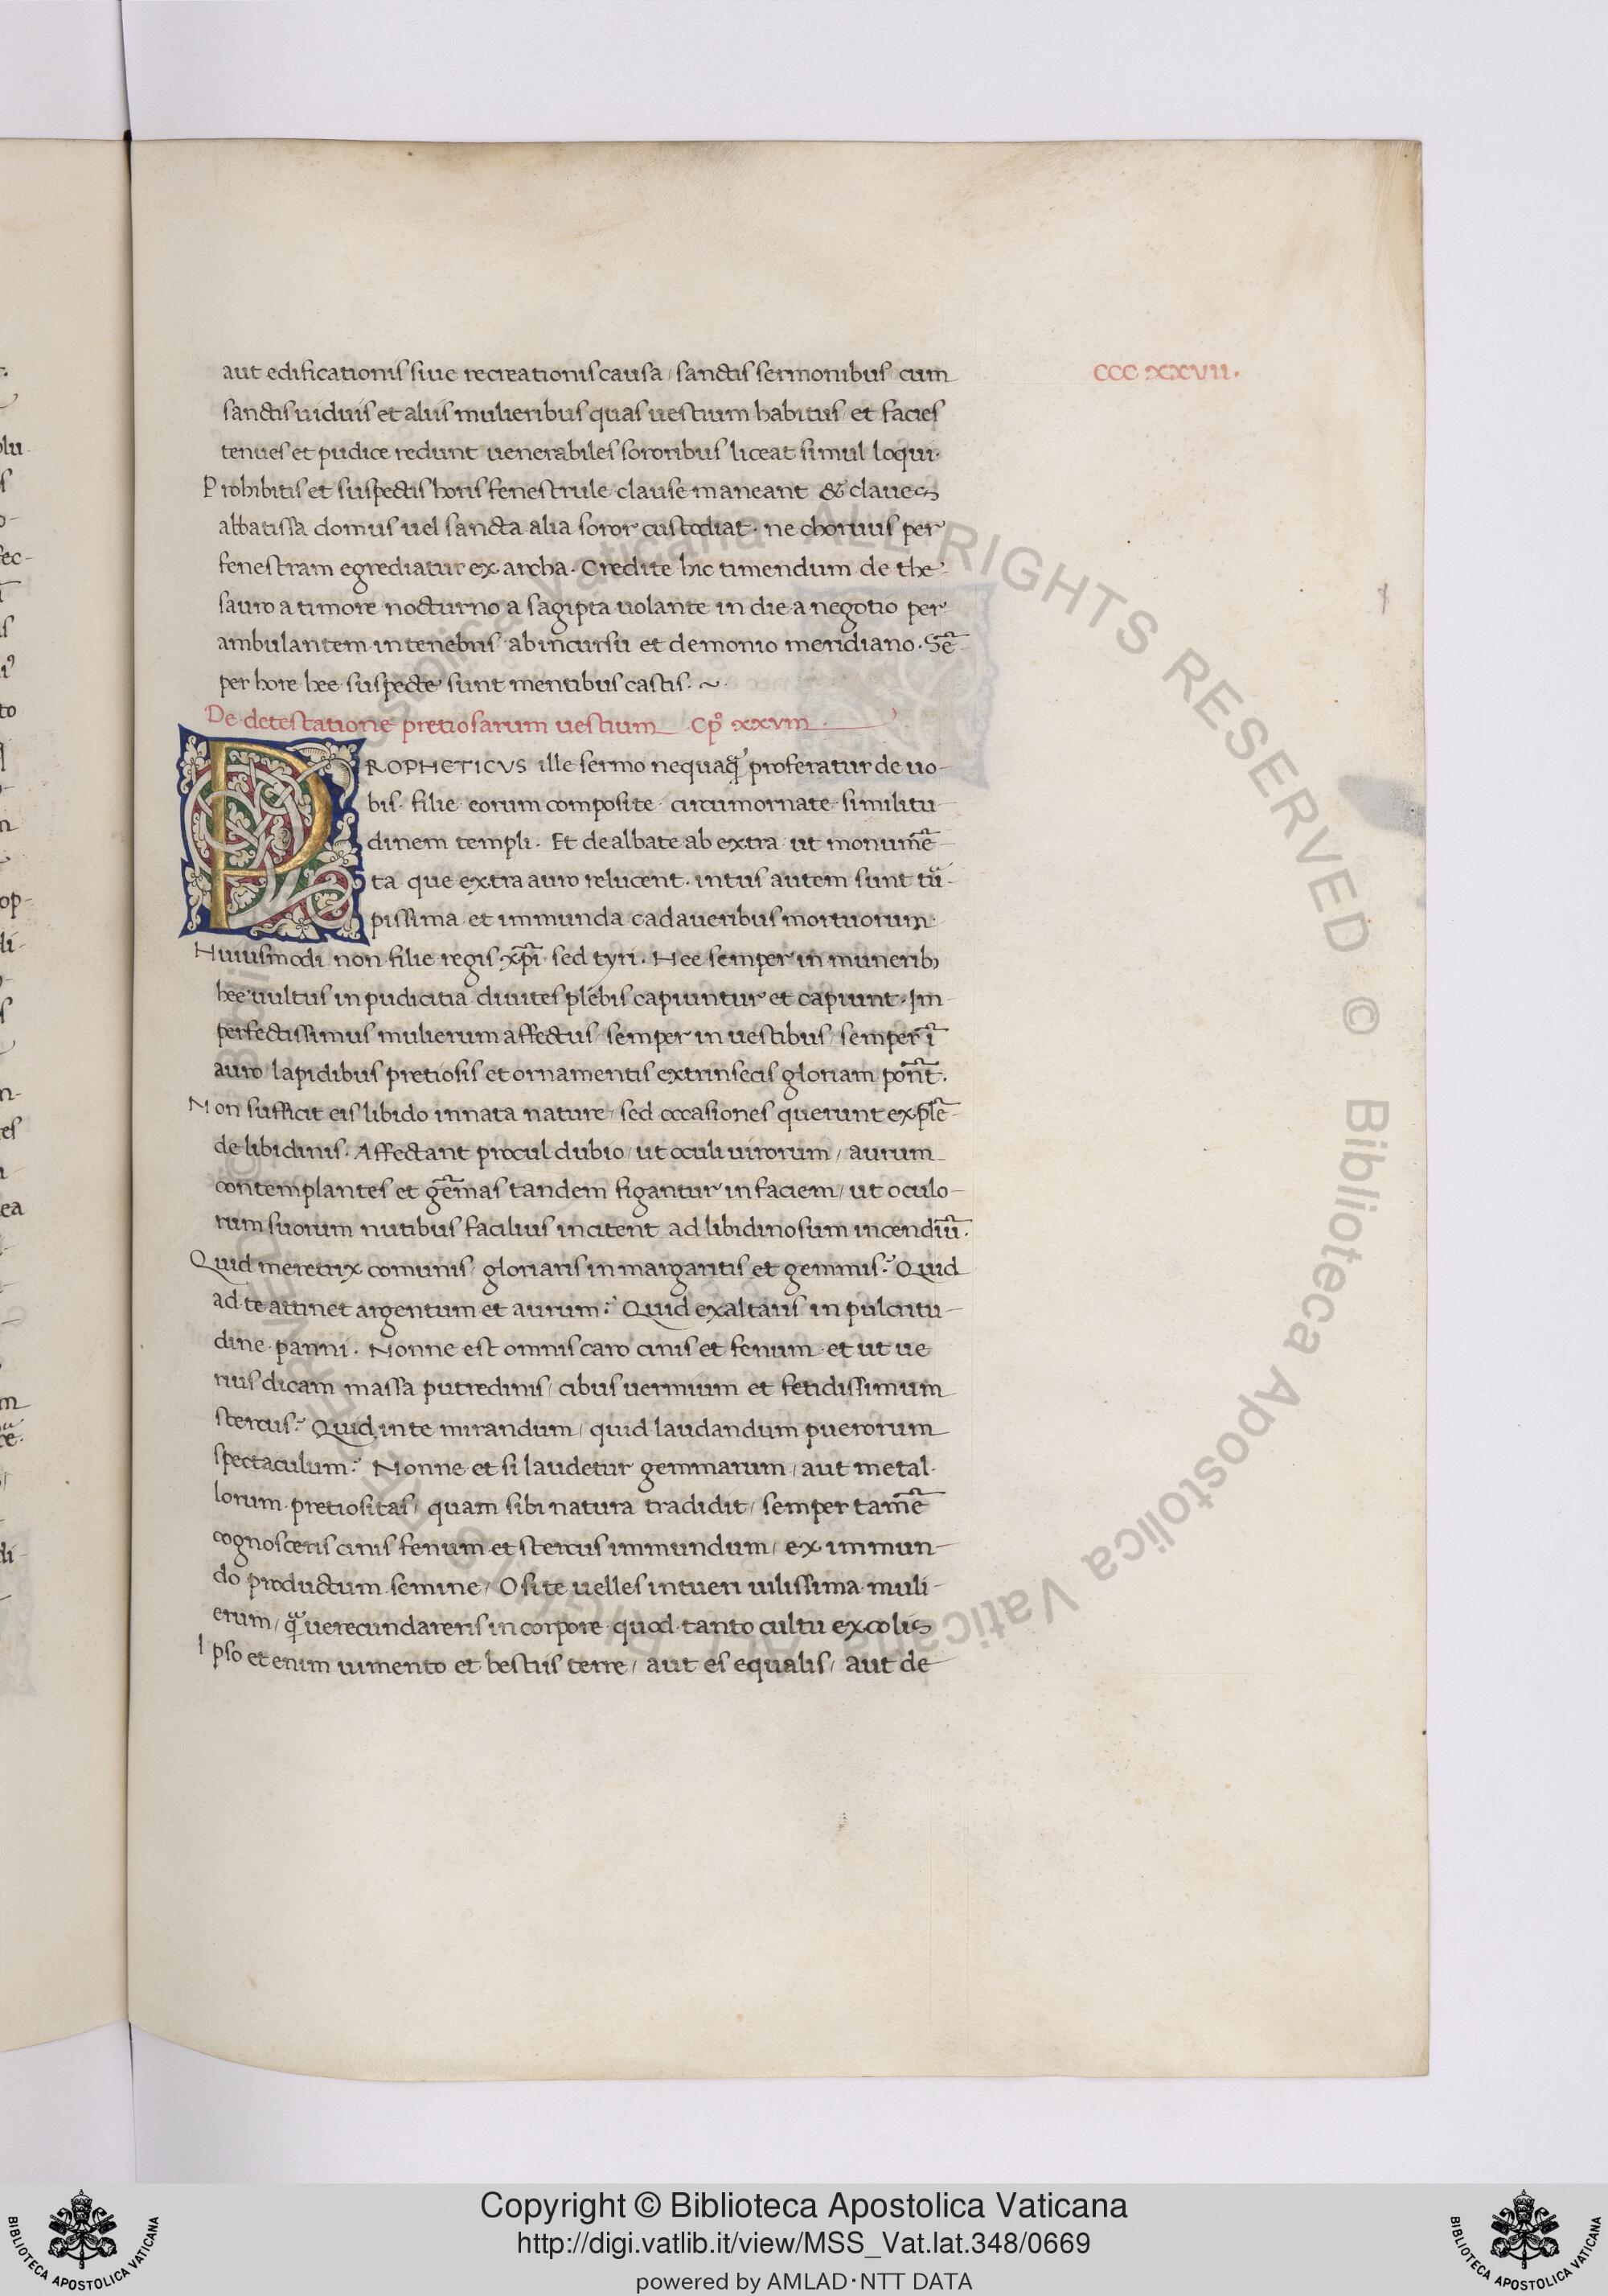 CCC XXVII.
aut edificationis siue recreationis causa / sanctis sermonibus cum
sanctis uiduis et aliis mulieribus quas uestium habitus et facies
tenues et pudice redunt uenerabiles sororibus liceat simul loqui.
Prohibitis et suspectis horis fenestrule clause maneant & claues
abbatissa domus uel sancta alia soror custodiat. ne choruus per
fenestram egrediatur ex archa. Credite hic timendum de the-
sauro a timore nocturno a sagipta uolante in die a negotio per
ambulantem in tenebris ab incursu et demonio meridiano. Sē
per hore hee suspecte sunt mentibus castis. ~
De detestatione pretiosarum uestium Cpº xxviii.
PROPHETICVS ille sermo nequaq̄ proferatur de uo-
bis. filie eorum composite circumornate similitu-
dinem templi. Et dealbate ab extra ut monumē-
ta que extra auro relucent. intus autem sunt tur-
pissima et immunda cadaueribus mortuorum.
Huiusmodi non filie regis xp̄i sed tyri. Hee semper in munerib;
hee uultus in pudicitia diuites plebis capiuntur et capiunt. Im-
perfectissimus mulierum affectus / semper in uestibus / semper ī
auro lapidibus pretiosis et ornamentis extrinsecis gloriam pon̄t.
Non sufficit eis libido innata nature / sed occasiones querunt explē-
de libidinis. Affectant procul dubio / ut oculi uirorum / aurum
contemplantes et gēmas tandem figantur in faciem / ut oculo-
rum suorum nutibus facilius incitent ad libidinosum incendiū.
Quid meretrix comunis / gloriaris in margaritis et gemmis? Quid
ad te attinet argentum et aurum? Quid exaltaris in pulcritu-
dine panni. Nonne est omnis caro cinis et fenum et ut ue
rius dicam massa putredinis / cibus uermium et fetidissimum
stercus? Quid in te mirandum / quid laudandum puerorum
spectaculum? Nonne et si laudetur gemmarum / aut metal-
lorum pretiositas / quam sibi natura tradidit / semper tamē
cognosceris cinis fenum et stercus immundum / ex immun-
do productum semine / O si te uelles intueri uilissima muli-
erum / q̄ uerecundareris in corpore quod tanto cultu excolis
Ipso et enim uimento et bestiis terre / aut es equalis / aut de
Copyright © Biblioteca Apostolica Vaticana
http://digi.vatlib.it/view/MSS_Vat.lat.348/0669
powered by AMLAD·NTT DATA
BIBLIOTECA APOSTOLICA VATICANA
BIBLIOTECA APOSTOLICA VATICANA